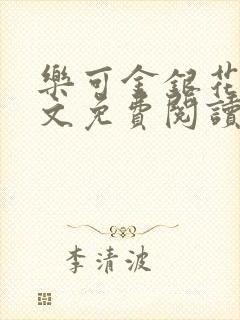 樂可金銀花
文免費閱讀
李清波